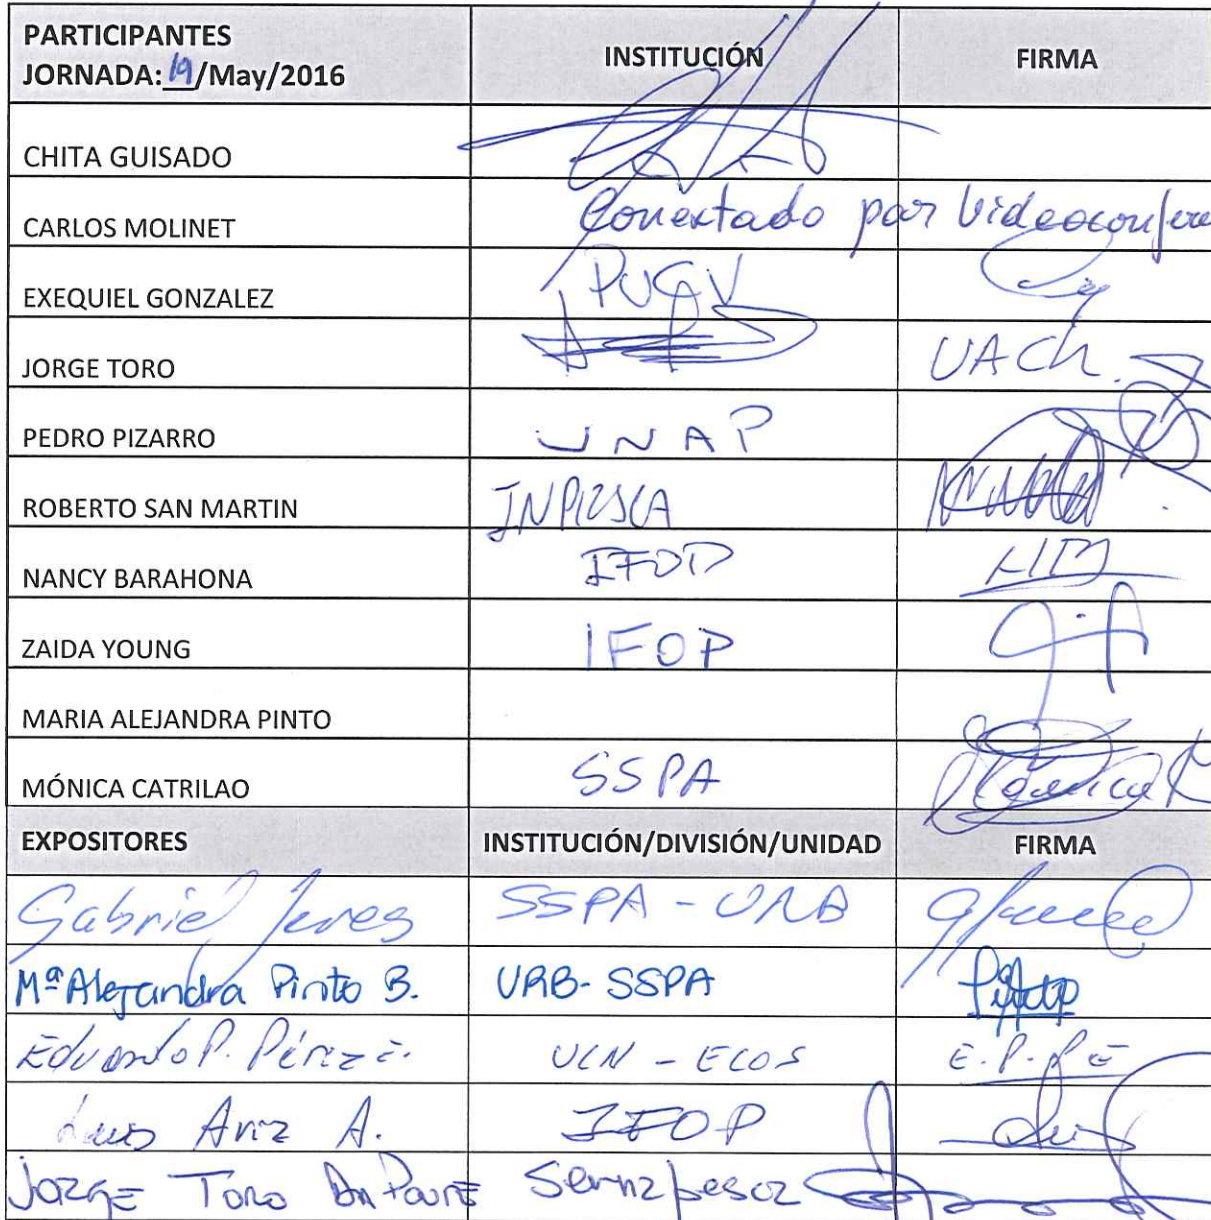 PARTICIPANTES INSTITUCIÓN FIRMA
JORNADA: 19/May/2016
CHITA GUISADO
CARLOS MOLINET Conectado por Videoconferen
EXEQUIEL GONZALEZ PUCV
JORGE TORO UACh.
PEDRO PIZARRO UNAP
ROBERTO SAN MARTIN INPESCA
NANCY BARAHONA IFOP
ZAIDA YOUNG IFOP
MARIA ALEJANDRA PINTO
MÓNICA CATRILAO SSPA
EXPOSITORES INSTITUCIÓN/DIVISIÓN/UNIDAD FIRMA
Gabriel Jerez SSPA - URB
Mª Alejandra Pinto B. URB-SSPA
Eduardo P. Pérez E. UCN - ECOS E.P.PE
Luis Ariz A. IFOP
Jorge Toro Da Ponte Sernapesca